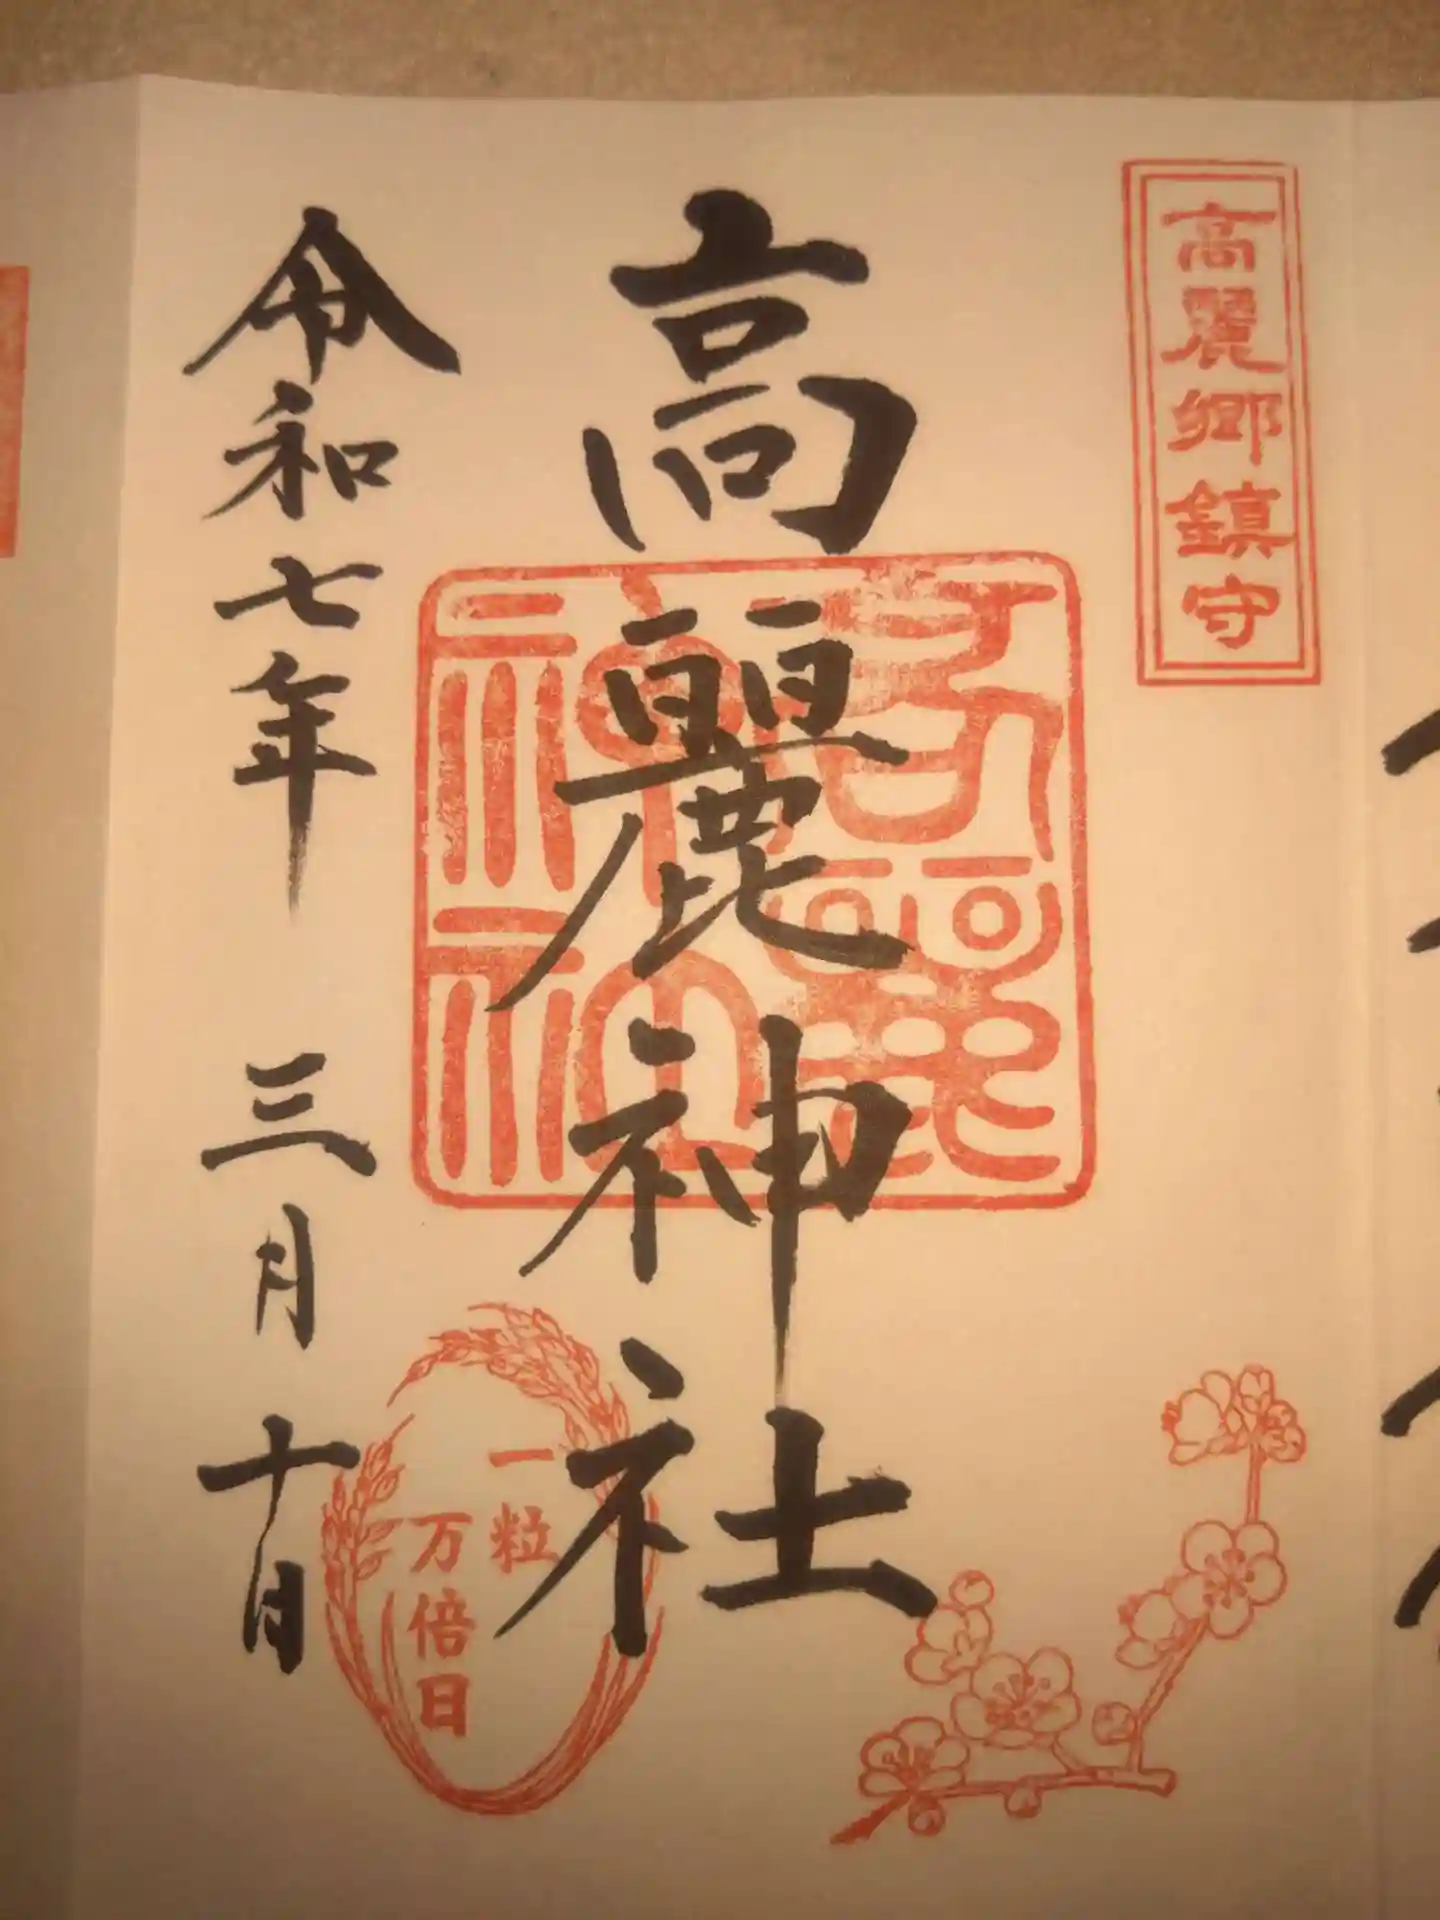 高麗郷鎮守
高麗神社
高麗神社
一粒
万倍日
令和七年 三月 十日